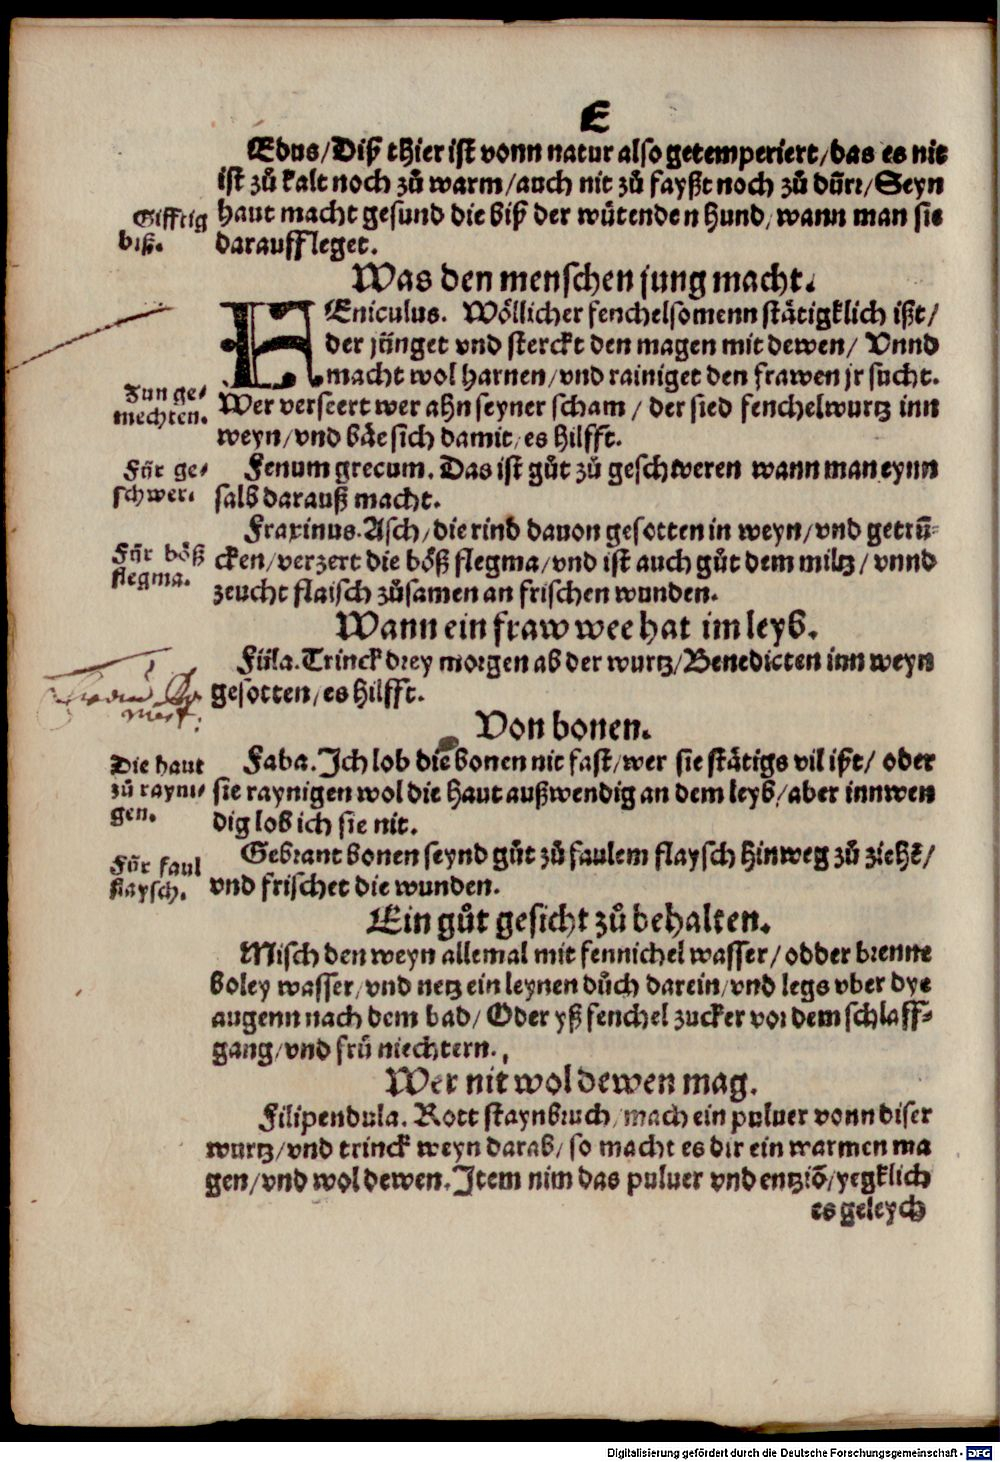 E
Edus/Diß thier ist vonn natur also getemperiert/das es nit
ist zů kalt noch zů warm/auch nit zů fayßt noch zů dürr/Seyn
haut macht gesund die biß der wütenden hund/wann man sie
darauffleget.
Gifftig
biß.
Was den menschen jung macht.
FEniculus. Wöllicher fenchelsomenn stätigklich ißt/
der jünget vnd sterckt den magen mit dewen/ Vnnd
macht wol harnen/vnd rainiget den frawen jr sucht.
Wer verseert wer ahn seyner scham / der sied fenchelwurtz inn
weyn/vnd bäe sich damit/es hilfft.
Zun ge-
mechten.
Fenum grecum. Das ist gůt zů geschweren wann man eynn
salb darauß macht.
Für ge-
schwer.
Fraxinus. Asch/die rind dauon gesotten in weyn/vnd getrū-
cken/verzert die böß flegma/vnd ist auch gůt dem miltz/vnnd
zeucht flaisch zůsamen an frischen wunden.
Für böß
flegma.
Wann ein fraw wee hat im leyb.
Fiila. Trinck drey morgen ab der wurtz/Benedicten inn weyn
gesotten/es hilfft.
Von bonen.
Faba. Ich lob die bonen nit fast/wer sie stätigs vil ißt/ oder
sie raynigen wol die haut außwendig an dem leyb/aber innwen
dig lob ich sie nit.
Die haut
zů rayni-
gen.
Gebrant bonen seynd gůt zů faulem flaysch hinweg zů ziehē/
vnd frischet die wunden.
Für faul
flaysch.
Ein gůt gesicht zů behalten.
Misch den weyn allemal mit fennichel wasser/odder brenne
boley wasser/vnd netz ein leynen důch darein/vnd legs vber dye
augenn nach dem bad/ Oder yß fenchel zucker vor dem schlaff-
gang/vnd frü niechtern.
Wer nit wol dewen mag.
Filipendula. Rott staynbruch/mach ein puluer vonn diser
wurtz/vnd trinck weyn darab/so macht es dir ein warmen ma
gen/vnd wol dewen. Item nim das puluer vnd entziō/yegklich
es geleych
Digitalisierung gefördert durch die Deutsche Forschungsgemeinschaft - DFG